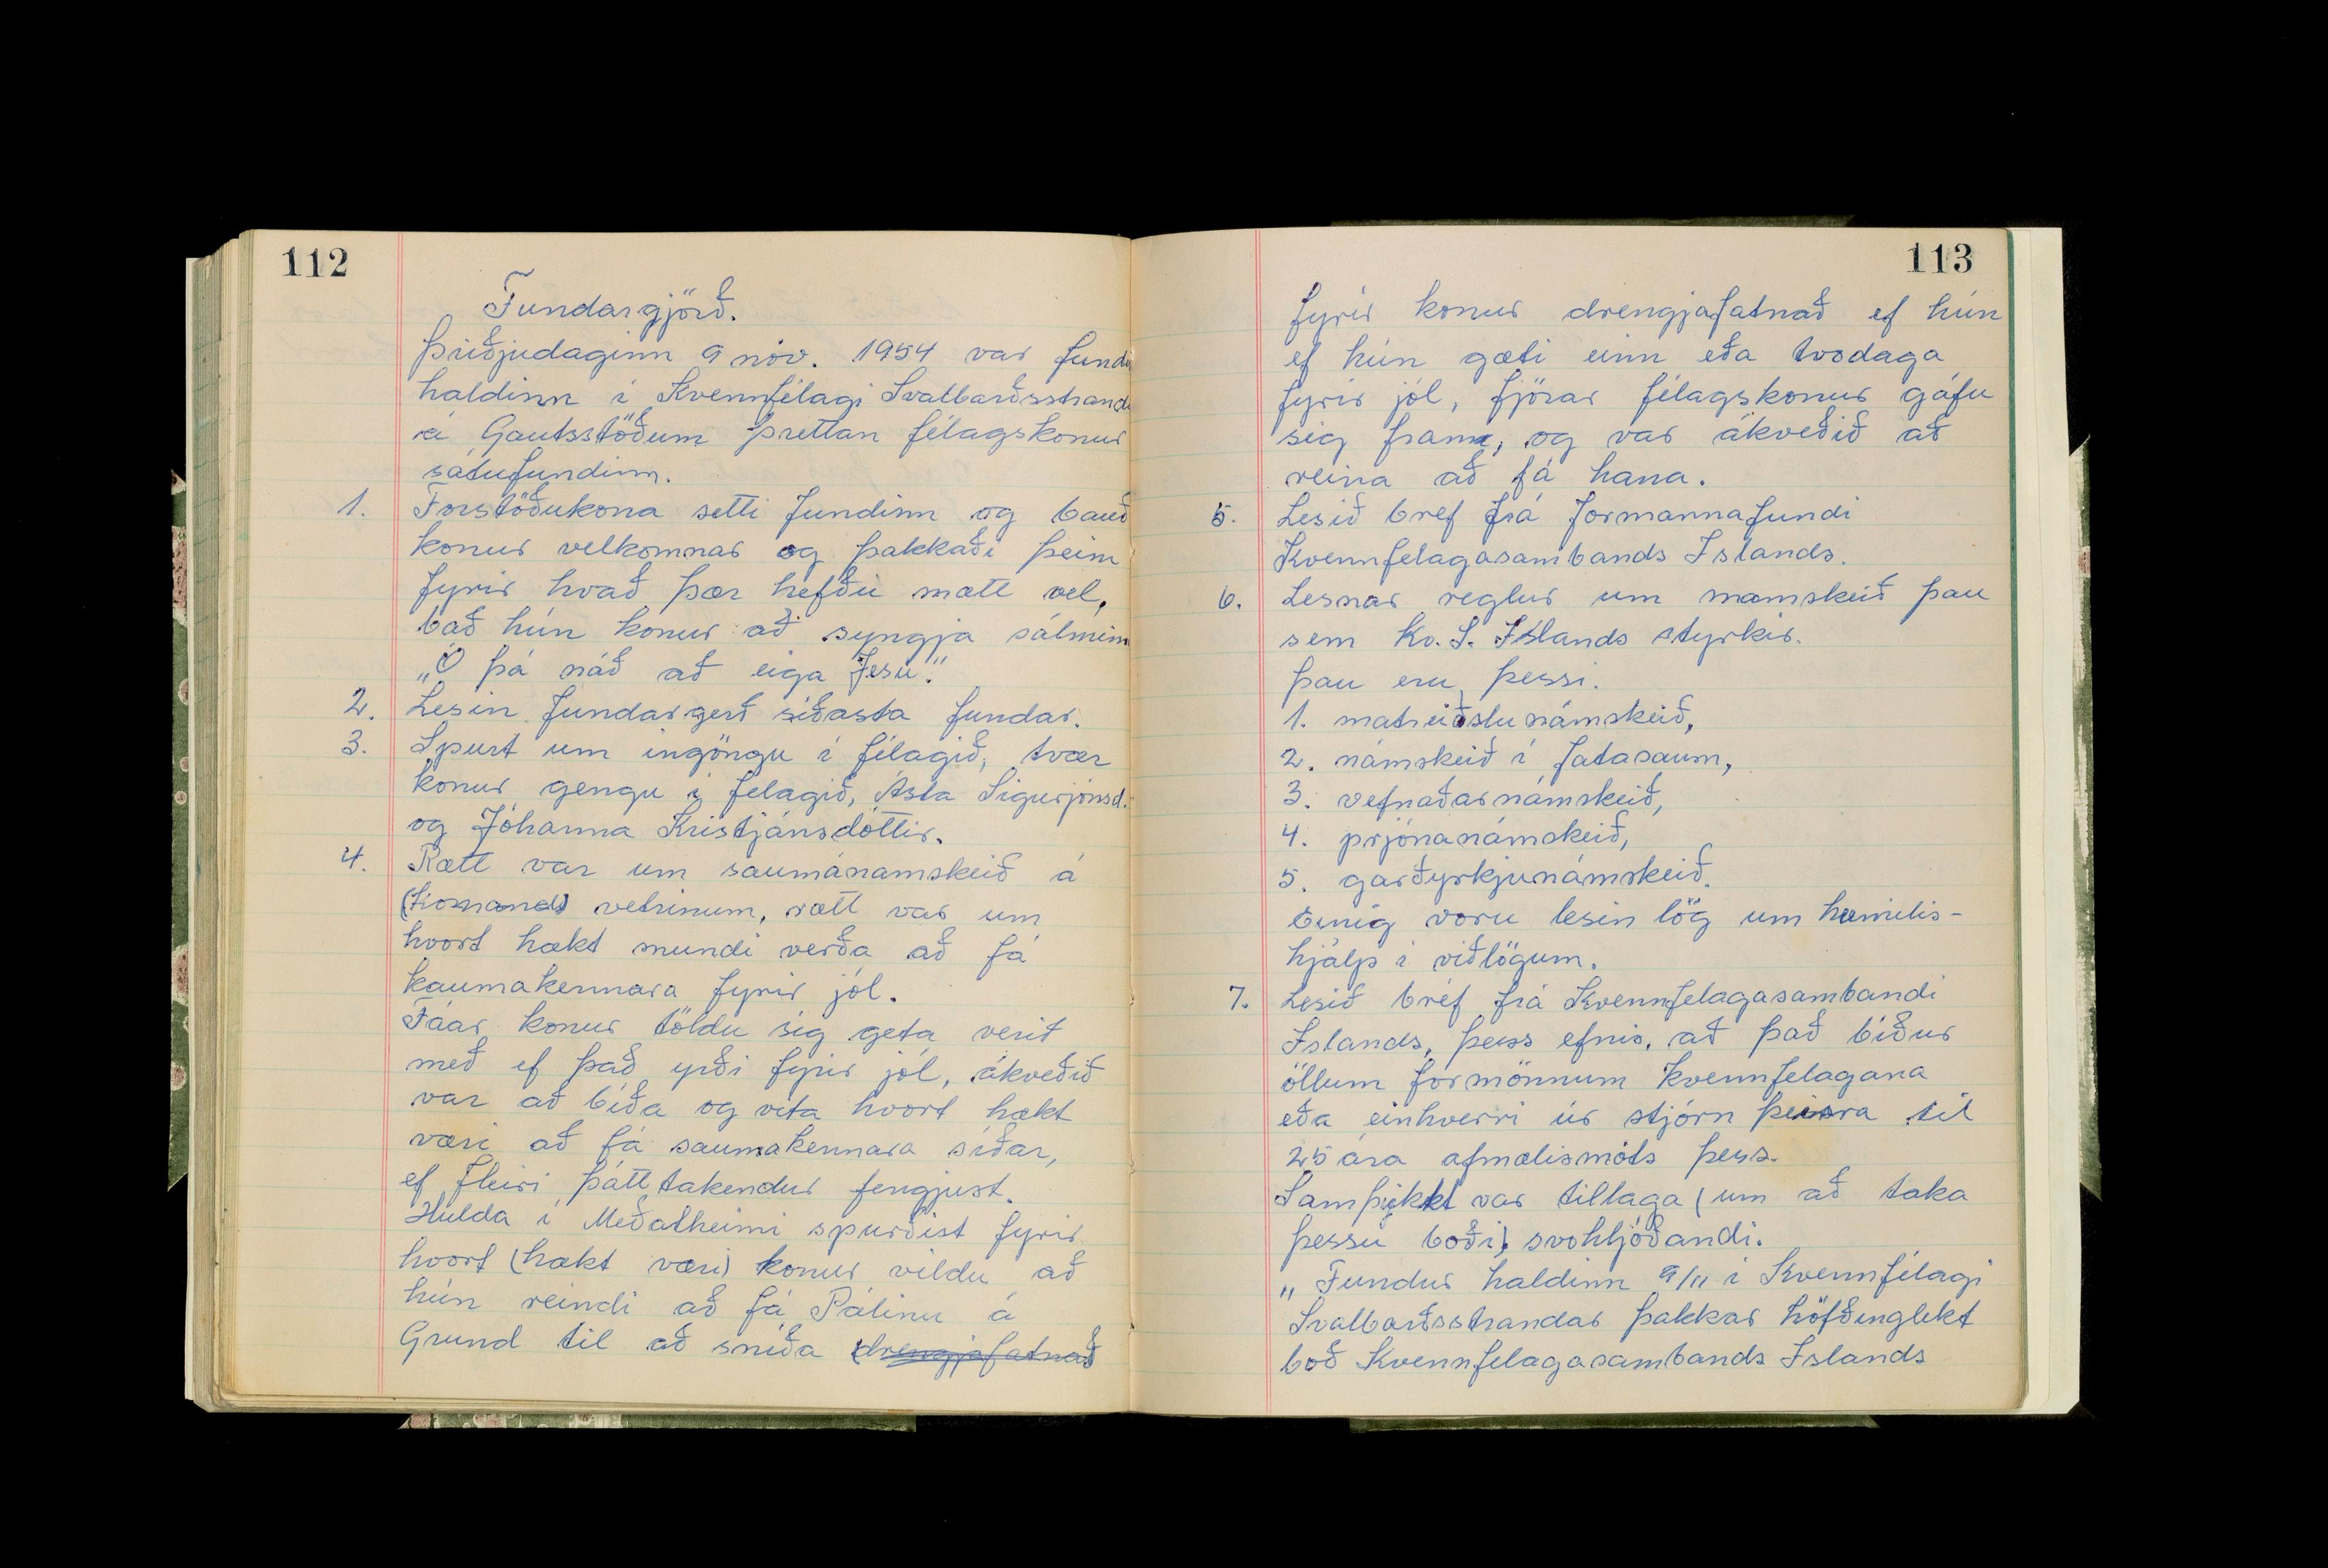 112
Fundargjörð.
Þriðjudaginn 9 nóv. 1954 var fundu
haldinn í Kvennfélagi Svalbarðsstrand
á Gautsstöðum þrettan félagskonur
sátufundinn.
1. Forstöðukona setti fundinn og bauð
konur velkomnar og þakkaði þeim
fyrir hvað þær hefðu mætt vel,
bað hún konur að syngja sálminn
„Ó þá náð að eiga Jesú."
2. Lesin fundargerð síðasta fundar.
3. Spurt um ingöngu í félagið, tvær
konur gengu í felagið, Ásta Sigurjónsd.
og Jóhanna Kristjánsdóttir.
4. Rætt var um saumánamskeið á
(Komandi) vetrinum, rætt var um
hvort hækt mundi verða að fá
kaumakennara fyrir jól.
Fáar konur töldu sig geta verit
með ef það yrði fyrir jól, ákveðið
var að bíða og vita hvort hækt
væri að fá saumakennara síðar,
ef fleiri þátttakendur fengjust.
Hulda í Meðalheimi spurðist fyrir
hvort (hækt væri) konur vildu að
hún reindi að fá Pálínu á
Grund til að sníða drengjafatnað
113
fyrir konur drengjafatnað ef hún
ef hún gæti einn eða tvodaga
fyrir jól, fjórar félagskonur gáfu
sig fram, og var ákveðið að
reina að fá hana.
5. Lesið bref frá formannafundi
Kvennfelagasambands Islands.
6. Lesnar reglur um mamskeið þau
sem Kv. S. Islands styrkir.
Þau eru þessi.
1. matreiðslunámskeið,
2. námskeið í fatasaum,
3. vefnaðarnámskeið,
4. prjónanámskeið,
5. garðyrkjunámskeið.
Einig voru lesin lög um heimilis-
hjálp í viðlögum.
7. Lesið bréf frá Kvennfelagasambandi
Islands, þess efnis, að það bíður
öllum formönnum kvennfelagana
eða einhverri úr stjórn þeirra til
25 ára afmælismóts þess.
Samþikkt var tillaga (um að taka
þessu boði) svohljóðandi.
„Fundur haldinn 9/11 í Kvennfélagi
Svalbarðsstrandar þakkar höfðinglekt
boð Kvennfelagasambands Islands